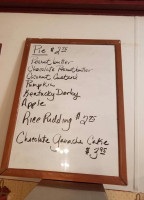 Pie $2.25
Peanutbutter
Chocolate Peanutbutter
Coconut Custard
Pumpkin
Kentucky Derby
Apple
Rice Pudding $2.25
Chocolate Ganache Cake
$3.95